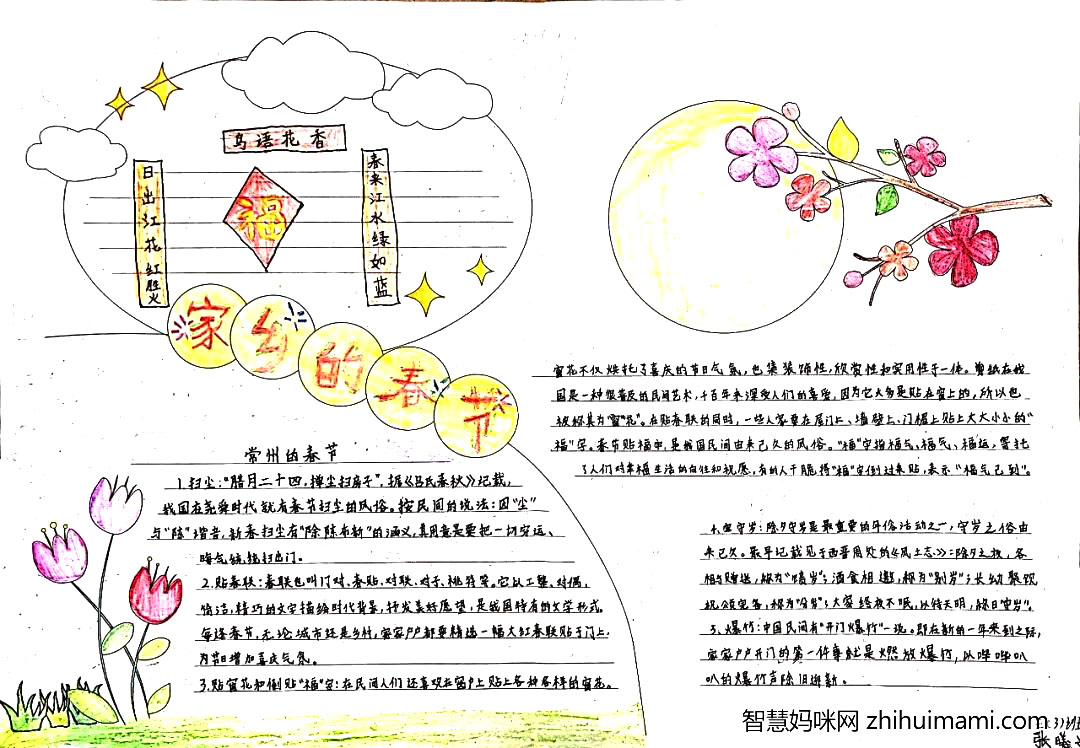 鸟语花香
日出江花红胜火
福
春来江水绿如蓝
家乡的春节
常州的春节
1.扫尘:“腊月二十四,掸尘扫房子”,据《吕氏春秋》记载,
我国在尧舜时代就有春节扫尘的风俗。按民间的说法:因“尘”
与“陈”谐音,新春扫尘有“除陈布新”的涵义,其用意是要把一切穷运、
晦气统统扫出门。
2.贴春联:春联也叫门对、春贴、对联、对子、桃符等。它以工整、对偶、
简洁、精巧的文字描绘时代背景,抒发美好愿望,是我国特有的文学形式。
每逢春节,无论城市还是乡村,家家户户都要精选一幅大红春联贴于门上,
为节日增加喜庆气氛。
3.贴窗花和倒贴“福”字:在民间人们还喜欢在窗户上贴上各种各样的窗花。
窗花不仅烘托了喜庆的节日气氛,也集装饰性,欣赏性和实用性于一体。剪纸在我
国是一种很普及的民间艺术,千百年来深受人们的喜爱,因为它大多是贴在窗上的,所以也
被称其为“窗花”。在贴春联的同时,一些人家要在屋门上、墙壁上、门楣上贴上大大小小的“
福”字。春节贴福字,是我国民间由来已久的风俗。“福”字指福气、福运,寄托
了人们对幸福生活的向往和祝愿,有的人干脆将“福”字倒过来贴,表示“福气已到”。
4.守岁:除夕守岁是最重要的年俗活动之一,守岁之俗由
来已久。最早记载见于西晋周处的《风土志》:除夕之夜,各
相与赠送,称为“馈岁”;酒食相邀,称为“别岁”;长幼聚饮
祝颂完备,称为“分岁”;大家终夜不眠,以待天明,称曰“守岁”。
5、爆竹:中国民间有“开门爆竹”一说。即在新的一年来到之际,
家家户户开门的第一件事就是燃放爆竹,以哔哔叭
叭的爆竹声除旧迎新。
智慧妈咪网 zhihuimami.com